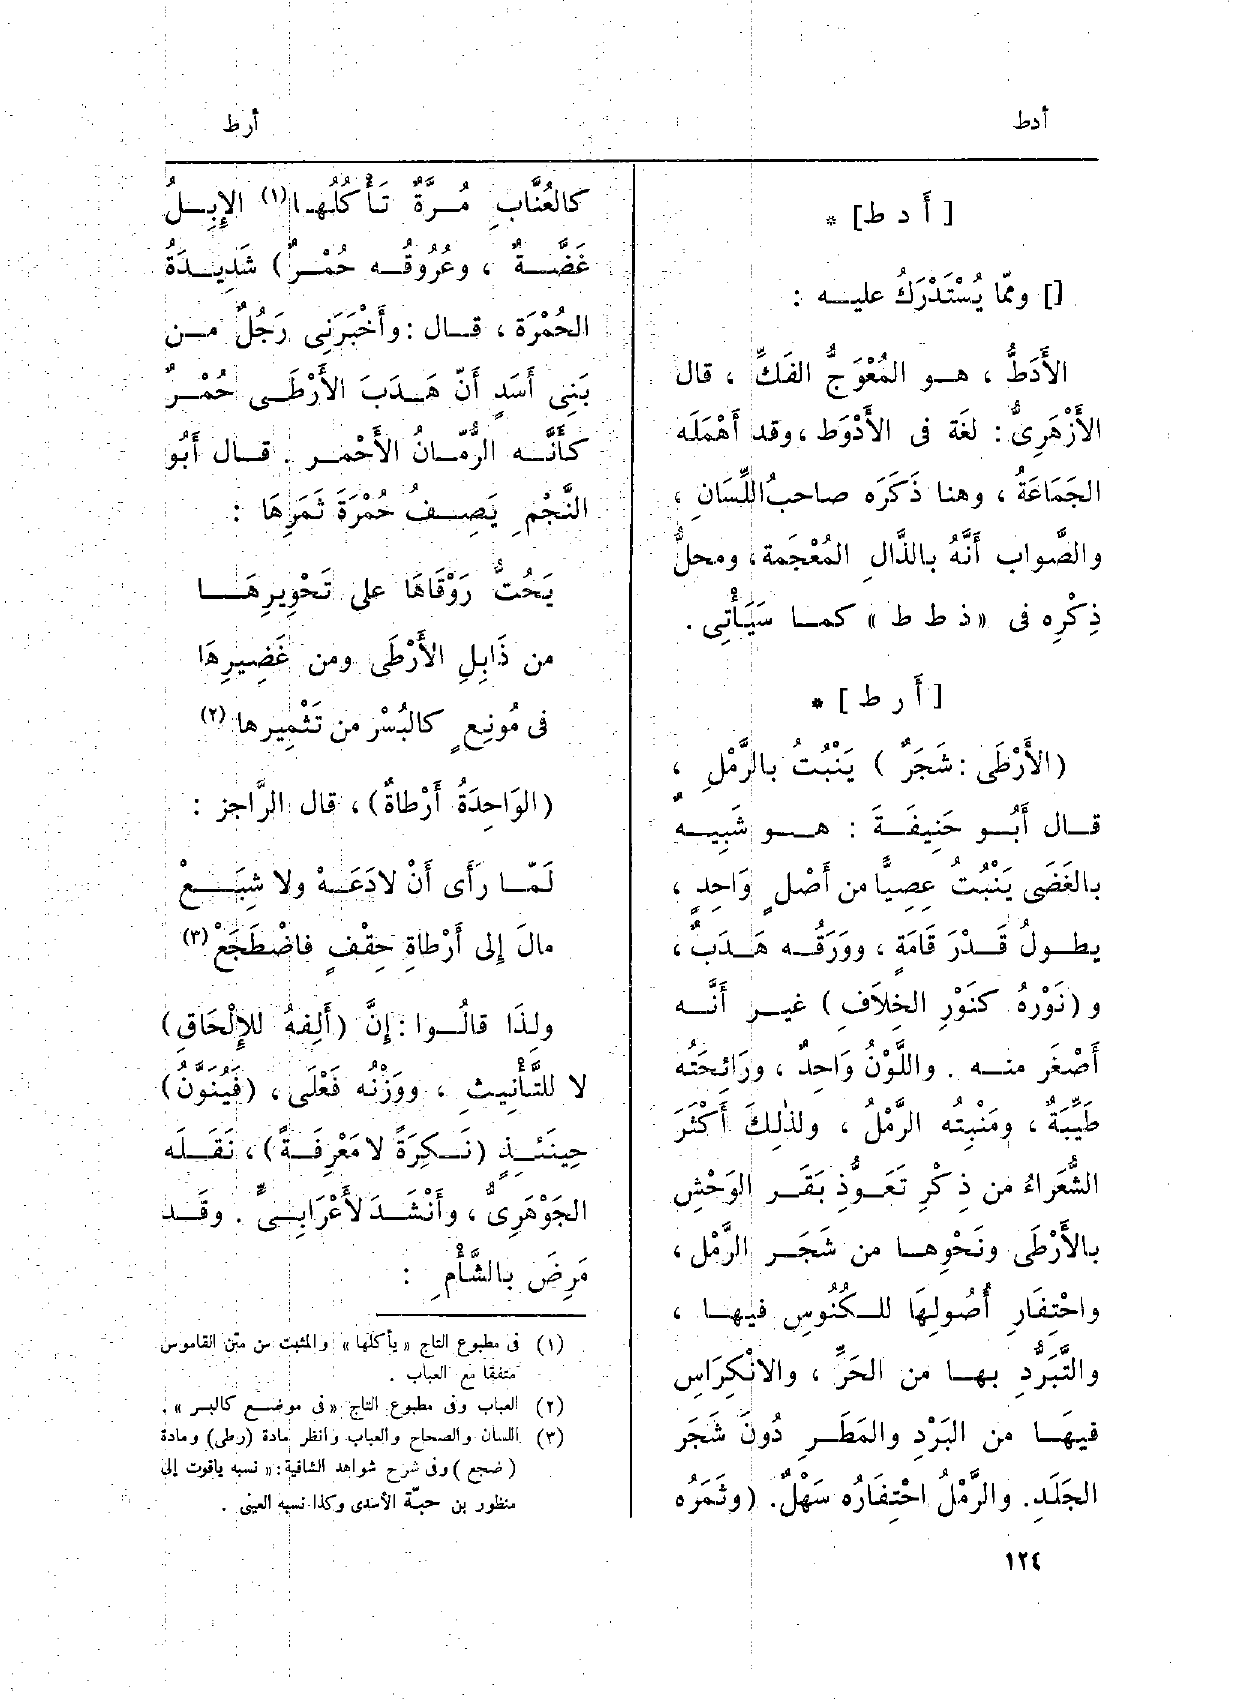 أدط
أرط
[ أ د ط ] *
[] وممّا يُسْتَدْرَكُ عليـه :
الأَدَطُّ ، هـو المُعْوَجُّ الفَكِّ ، قال
الأَزْهَرِىُّ : لغَة فى الأَدْوَط ، وقد أَهْمَلَه
الجَمَاعَةُ ، وهنا ذَكَرَه صاحبُ اللِّسَانِ ،
والصَّواب أَنَّهُ بالذَّالِ المُعْجَمة ، ومحلُّ
ذِكْرِه فى « ذ ط ط » كمـا سَيَأْتِى .
[ أ ر ط ] *
(الأَرْطَى : شَجَرٌ ) يَنْبُتُ بالرَّمْلِ ،
قـال أَبُـو حَنِيفَـةَ : هـو شَبِيـهٌ
بالغَضَى يَنْبُتُ عِصِيًّا من أَصْلٍ وَاحِدٍ ،
يطـولُ قَـدْرَ قَامَةٍ ، ووَرَقُـه هَـدَبٌ ،
و (نَوْرُهُ كنَوْرِ الخِلاَفِ ) غيـر أَنَّـه
أَصْغَر منـه . واللَّوْنُ وَاحِدٌ ، ورَائِحَتُه
طَيِّبَةٌ ، ومَنْبِتُه الرَّمْلُ ، ولذٰلِكَ أَكْثَرَ
الشُّعَراءُ من ذِكْرِ تَعَـوُّذِ بَقَـرِ الوَحْشِ
بالأَرْطَى ونَحْوِهـا من شَجَـر الرَّمْل ،
واحْتِفَارِ أُصُولِهَا للـكُنُوسِ فيهـا ،
والتَّبَرُّدِ بهـا من الحَرِّ ، والانْكِرَاسِ
فيهَـا من البَرْدِ والمَطَـرِ دُونَ شَجَر
الجَلَدِ. والرَّمْلُ احْتِفَارُه سَهْلٌ. (وثَمَرُه
كالعُنَّابِ مُـرَّةٌ تَـأْكُلُهـا(١) الإِبِـلُ
غَضَّـةً ، وعُرُوقُـه حُمْـرٌ ) شَدِيـدَةُ
الحُمْرَة ، قـال : وأَخْبَرَنِى رَجُلٌ مـن
بَنِى أَسَدٍ أَنّ هَـدَبَ الأَرْطَـى حُمْـرٌ
كأَنَّـه الرُّمّـانُ الأَحْمـر . قـال أَبُو
النَّجْمِ يَصِـفُ حُمْرَةَ ثَمَرِهَا :
يَحُتُّ رَوْقَاهَا على تَحْوِيرِهَـا
من ذَابِلِ الأَرْطَى ومن غَضِيرِهَا
فى مُونِعٍ كالبُسْرِ من تَثْمِيرها(٢)
(الوَاحِدَةُ أَرْطاةٌ) ، قال الرَّاجز :
لَمّـا رَأَى أَنْ لادَعَـهْ ولا شِبَـعْ
مالَ إلى أَرْطاةِ حِقْفٍ فاضْطَجَعْ(٣)
ولِذَا قالُـوا : إِنَّ (أَلِفَهُ للإِلْحَاقِ)
لا للتَّأْنِيثِ ، ووَزْنُه فَعْلَى ، (فيُنَوَّنُ)
حِينَئـذٍ (نَـكِرَةً لا مَعْرِفَـةً) ، نَقَـلَه
الجَوْهَرِىُّ ، وأَنْشَـدَ لأَعْرَابِـىٍّ . وقَـد
مَرِضَ بالشَّأْمِ :
(١) فى مطبوع التاج « يأكلها » والمثبت من متن القاموس
متفقا مع العباب .
(٢) العباب وفى مطبوع التاج « فى موضـع كالبر » .
(٣) اللسان والصحاح والعباب وانظر مادة (رطى) ومادة
( ضجع ) وفى شرح شواهد الشافية : « نسبه ياقوت إلى
منظور بن حبّة الأسدى وكذا نسبه العينى .
١٢٤